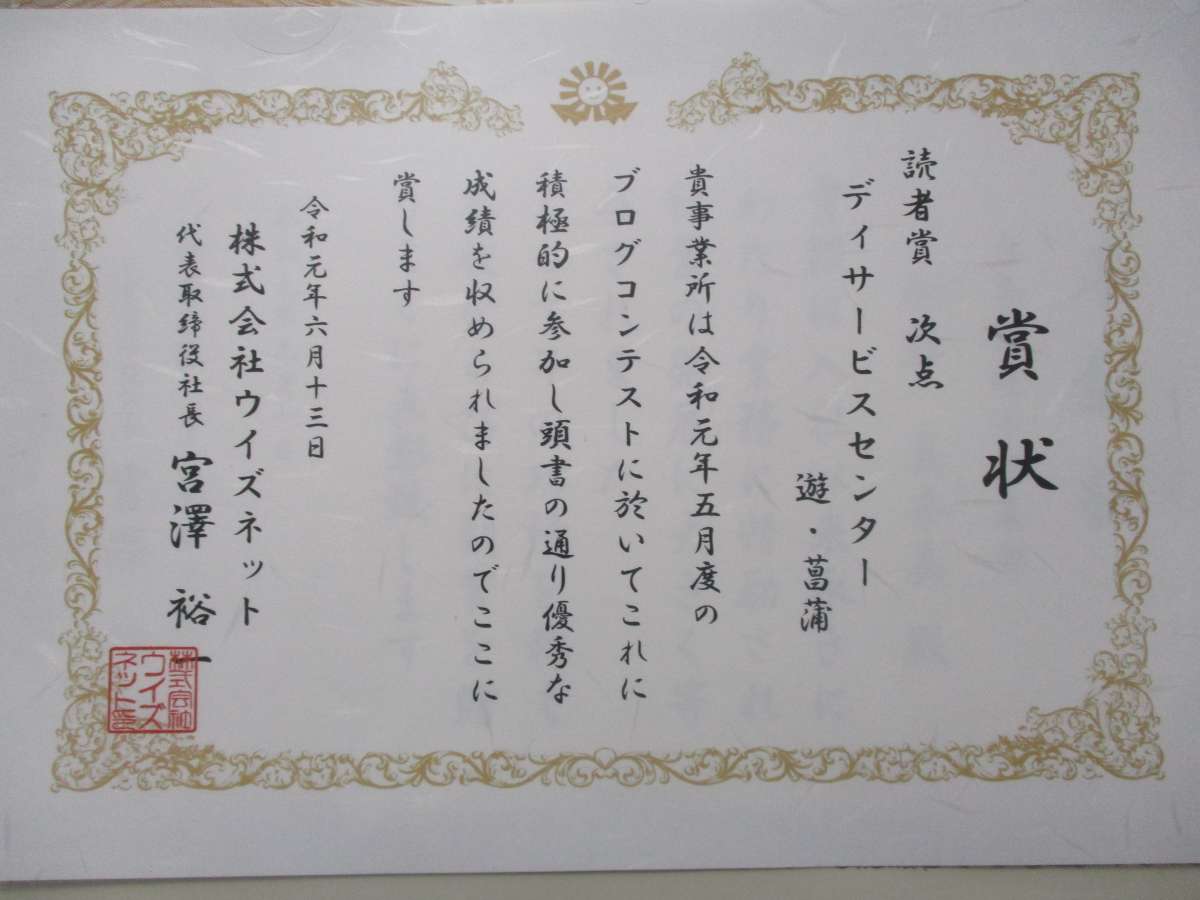 賞状
読者賞 次点
デイサービスセンター
遊・菖蒲
貴事業所は令和元年五月度の
ブログコンテストに於いてこれに
積極的に参加し頭書の通り優秀な
成績を収められましたのでここに
賞します
令和元年六月十三日
株式会社ウイズネット
代表取締役社長 宮澤 裕一
株式会社
ウイズ
ネット印